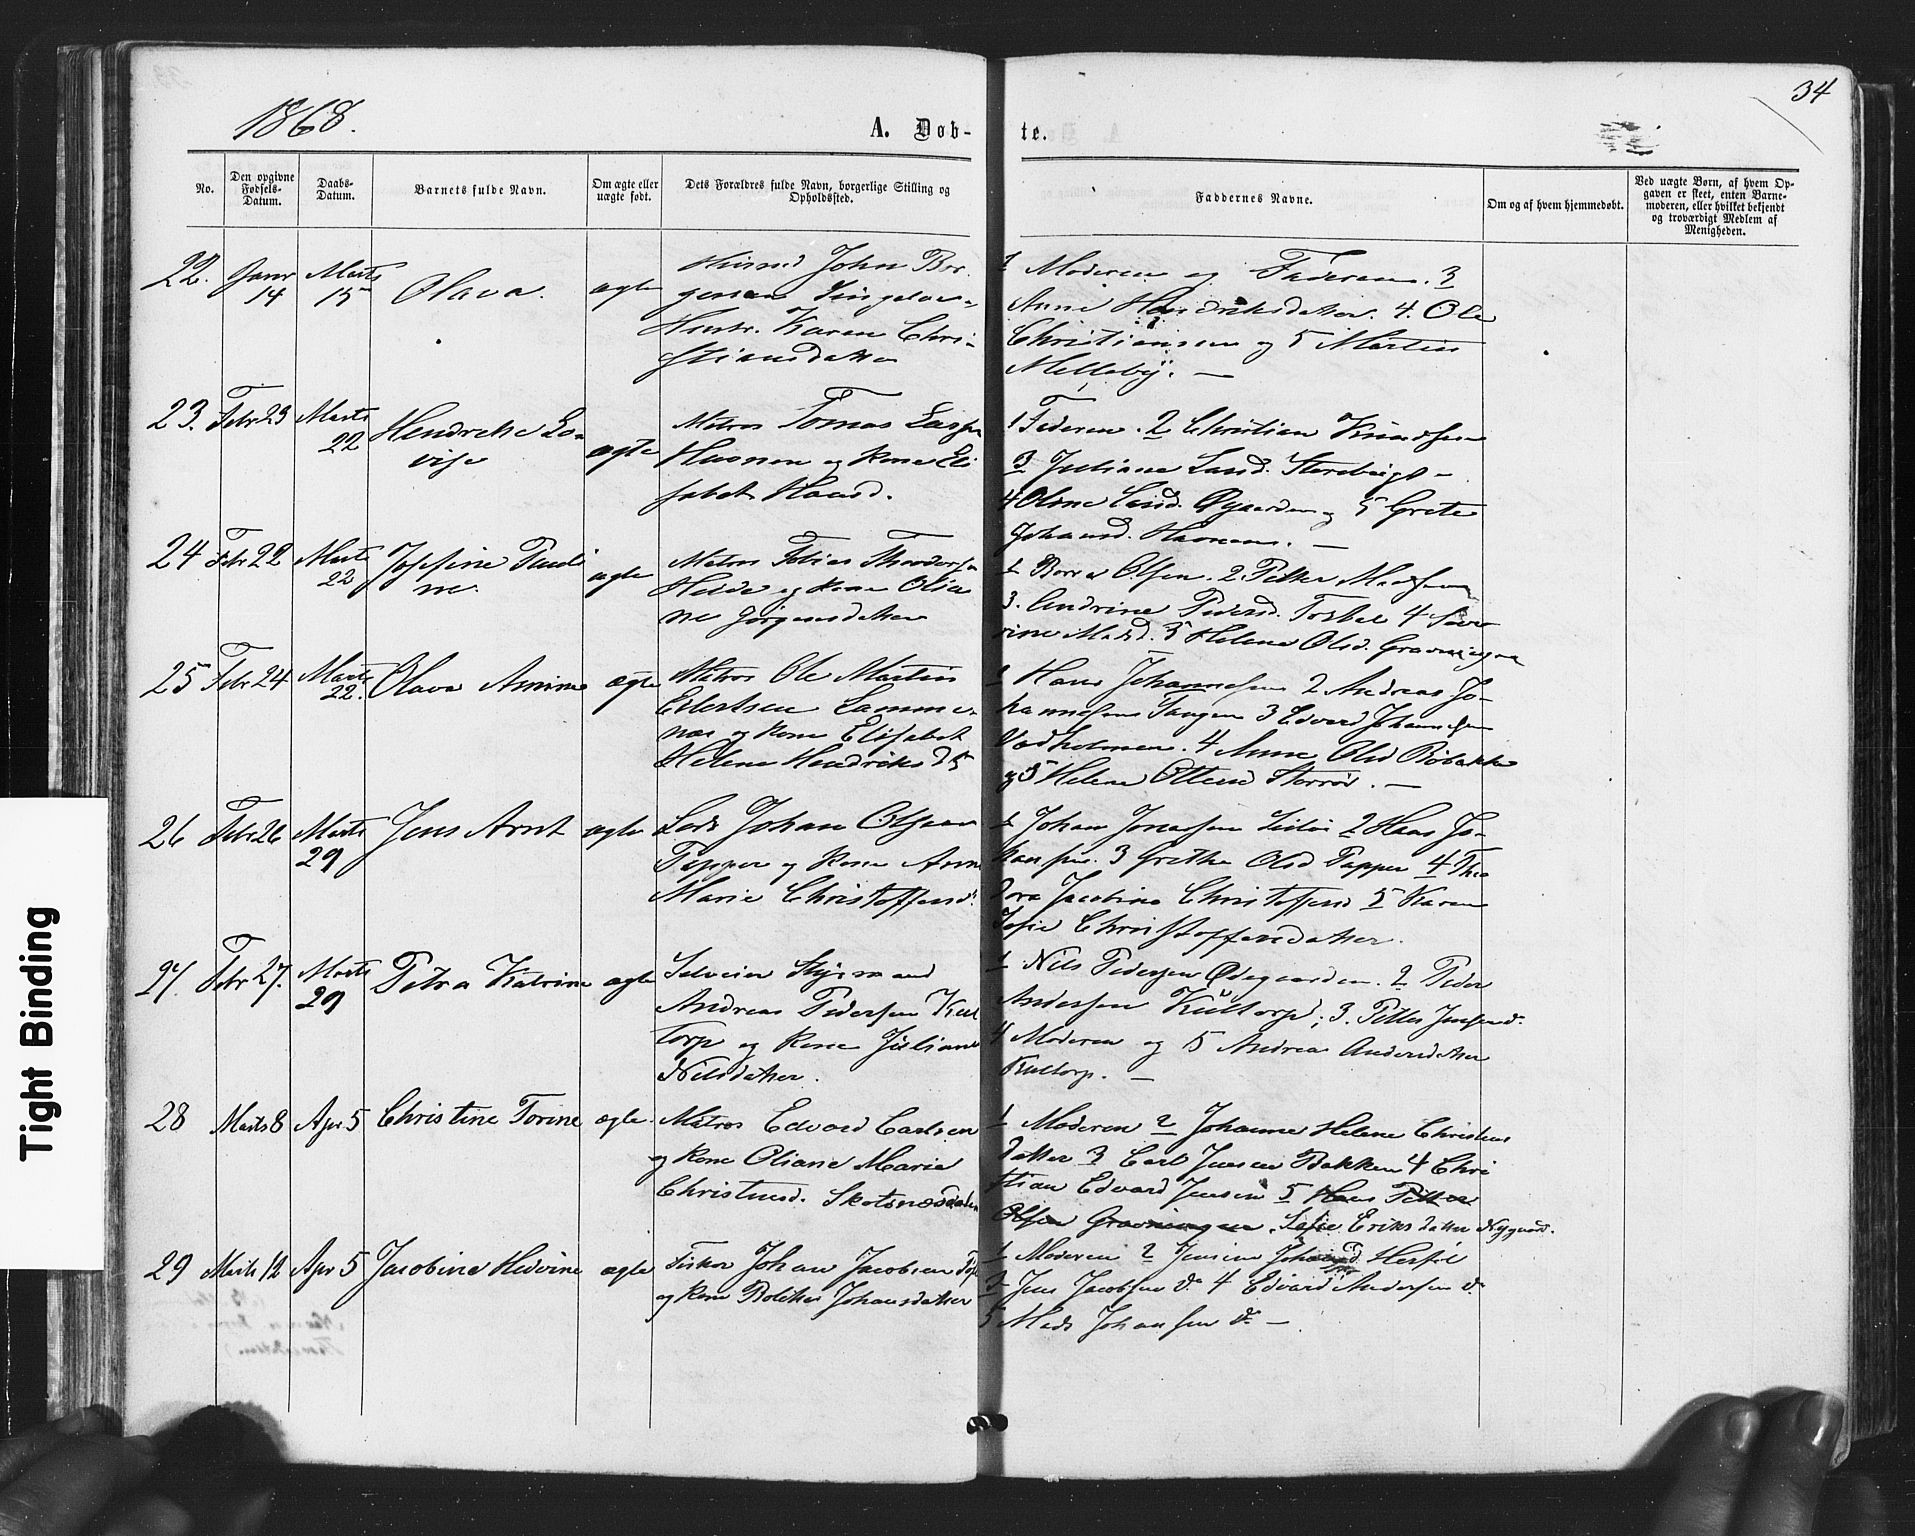 1868.
A. Døb-
te.
34
No.
Den opgivne Fødsels-Datum.
Daabs-Datum.
Barnets fulde Navn.
Om ægte eller uægte født.
Dets Forældres fulde Navn, borgerlige Stilling og Opholdssted.
Faddernes Navne.
Om og af hvem hjemmedøbt.
Ved uægte Børn, af hvem Opgaven er skeet, enten Barnemoderen, eller hvilket bekjendt og troværdigt Medlem af Menigheden.
22. Janr 14 Marts 15 Olava. ægte
Husmd John Bor-
gersen
Hustr. Karen Chri-
stiansdatter
1 Moderen og Faderen. 3
Anne Hendriksdatter. 4. Ole
Christiansen og 5 Martin
Melleby. —
23. Febr 23 Marts 22 Hendrikke Lo-
vise
ægte
Matros Tomas
Havnen og Kone Eli
sabet Hansd.
1 Faderen. 2 Christian Knudsen
3 Juliane Larsd.
4 Oline Larsd. Øgaarden og 5 Grete
Johansd. Havnen. —
24 Febr 22 Marts 22 Josefine Pauli
ne.
ægte
Matros Tobias
og Kone Olia
ne Jørgensdatter
1 Olsen. 2 Petter Madsen
3. Andrine Pedersd. 4 Seve
rine Madsd. 5 Helene Olsd. Gravningen
25 Febr 24 Marts 22. Olava Amine ægte
Matros Ole Martin
Edvertsen
og Kone Elisabet
Helene Hendriksd
1 Hans Johannesen 2 Andreas Jo-
hannesen Tangen 3 Edvard Johannesen
4 Anne Olsd
og 5 Helene Ottesd —
26 Febr 26 Marts 29 Jens Arnt ægte
Lods Johan Olsen
Papper og Kone Anne
Marie Christoffersd.
1 Johan 2 Hans Jo-
hansen. 3 Grethe Olsd Papper 4 Theo
dora Jacobine Christoffersd 5 Karen
Sofie Christoffersdatter.
27. Febr 27. Marts 29 Petra Katrine ægte
Selveier Styrmand
Andreas Pedersen Kul
torp og Kone Juliane
Nilsdatter.
1 Nils Pedersen Ødegaarden. 2 Peder
Andersen Kultorp; 3. Petter Jensen
4 Moderen og 5 Andrea Andersdatter
Kultorp. —
28 Marts 8 Apr 5 Christine Torine ægte.
Matros Edvard Carlsen
og Kone Oliane Marie
Christensd. Skotsnæsdalen
1 Moderen 2 Johanne Helene Christens
datter 3 Carl Jensen Bakken 4 Chri
stian Edvard Jensen 5 Hans Petter
Olsen Gravningen. Sofie Eriksdatter Nygaard.
29 Marts 12 Apr 5 Jacobine Hedvine ægte
Fisker Johan Jacobsen
og Kone Bolette Johansdatter
1 Moderen 2
3 Jens Jacobsen do 4 Edvard Andersen do
5 Mads Johansen do —
Tight Binding